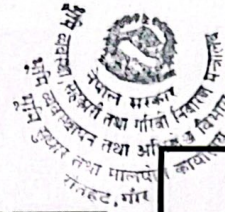 नेपाल सरकार
भूमि व्यवस्था सहकारी तथा गरिबी निवारण मन्त्रालय
भूमि व्यवस्थापन तथा अभिलेख विभाग
भूमि सुधार तथा मालपोत कार्यालय
रौतहट, गौर